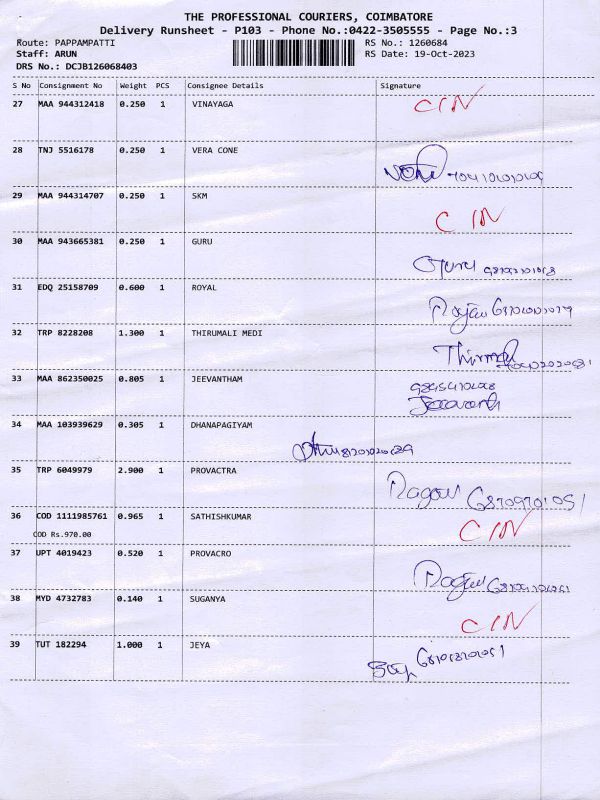 THE PROFESSIONAL COURIERS, COIMBATORE
Delivery Runsheet - P103 - Phone No.:0422-3505555 - Page No.:3
Route: PAPPAMPATTI RS No.: 1260684
Staff: ARUN RS Date: 19-Oct-2023
DRS No.: DCJB126068403
S No Consignment No Weight PCS Consignee Details Signature
27 MAA 944312418 0.250 1 VINAYAGA CIN
28 TNJ 5516178 0.250 1 VERA CONE
29 MAA 944314707 0.250 1 SKM CIN
30 MAA 943665381 0.250 1 GURU Guru
31 EDQ 25158709 0.600 1 ROYAL
32 TRP 8228208 1.300 1 THIRUMALI MEDI
33 MAA 862350025 0.805 1 JEEVANTHAM
34 MAA 103939629 0.305 1 DHANAPAGIYAM
35 TRP 6049979 2.900 1 PROVACTRA
36 COD 1111985761 0.965 1 SATHISHKUMAR CIN
COD Rs.970.00
37 UPT 4019423 0.520 1 PROVACRO
38 MYD 4732783 0.140 1 SUGANYA CIN
39 TUT 182294 1.000 1 JEYA